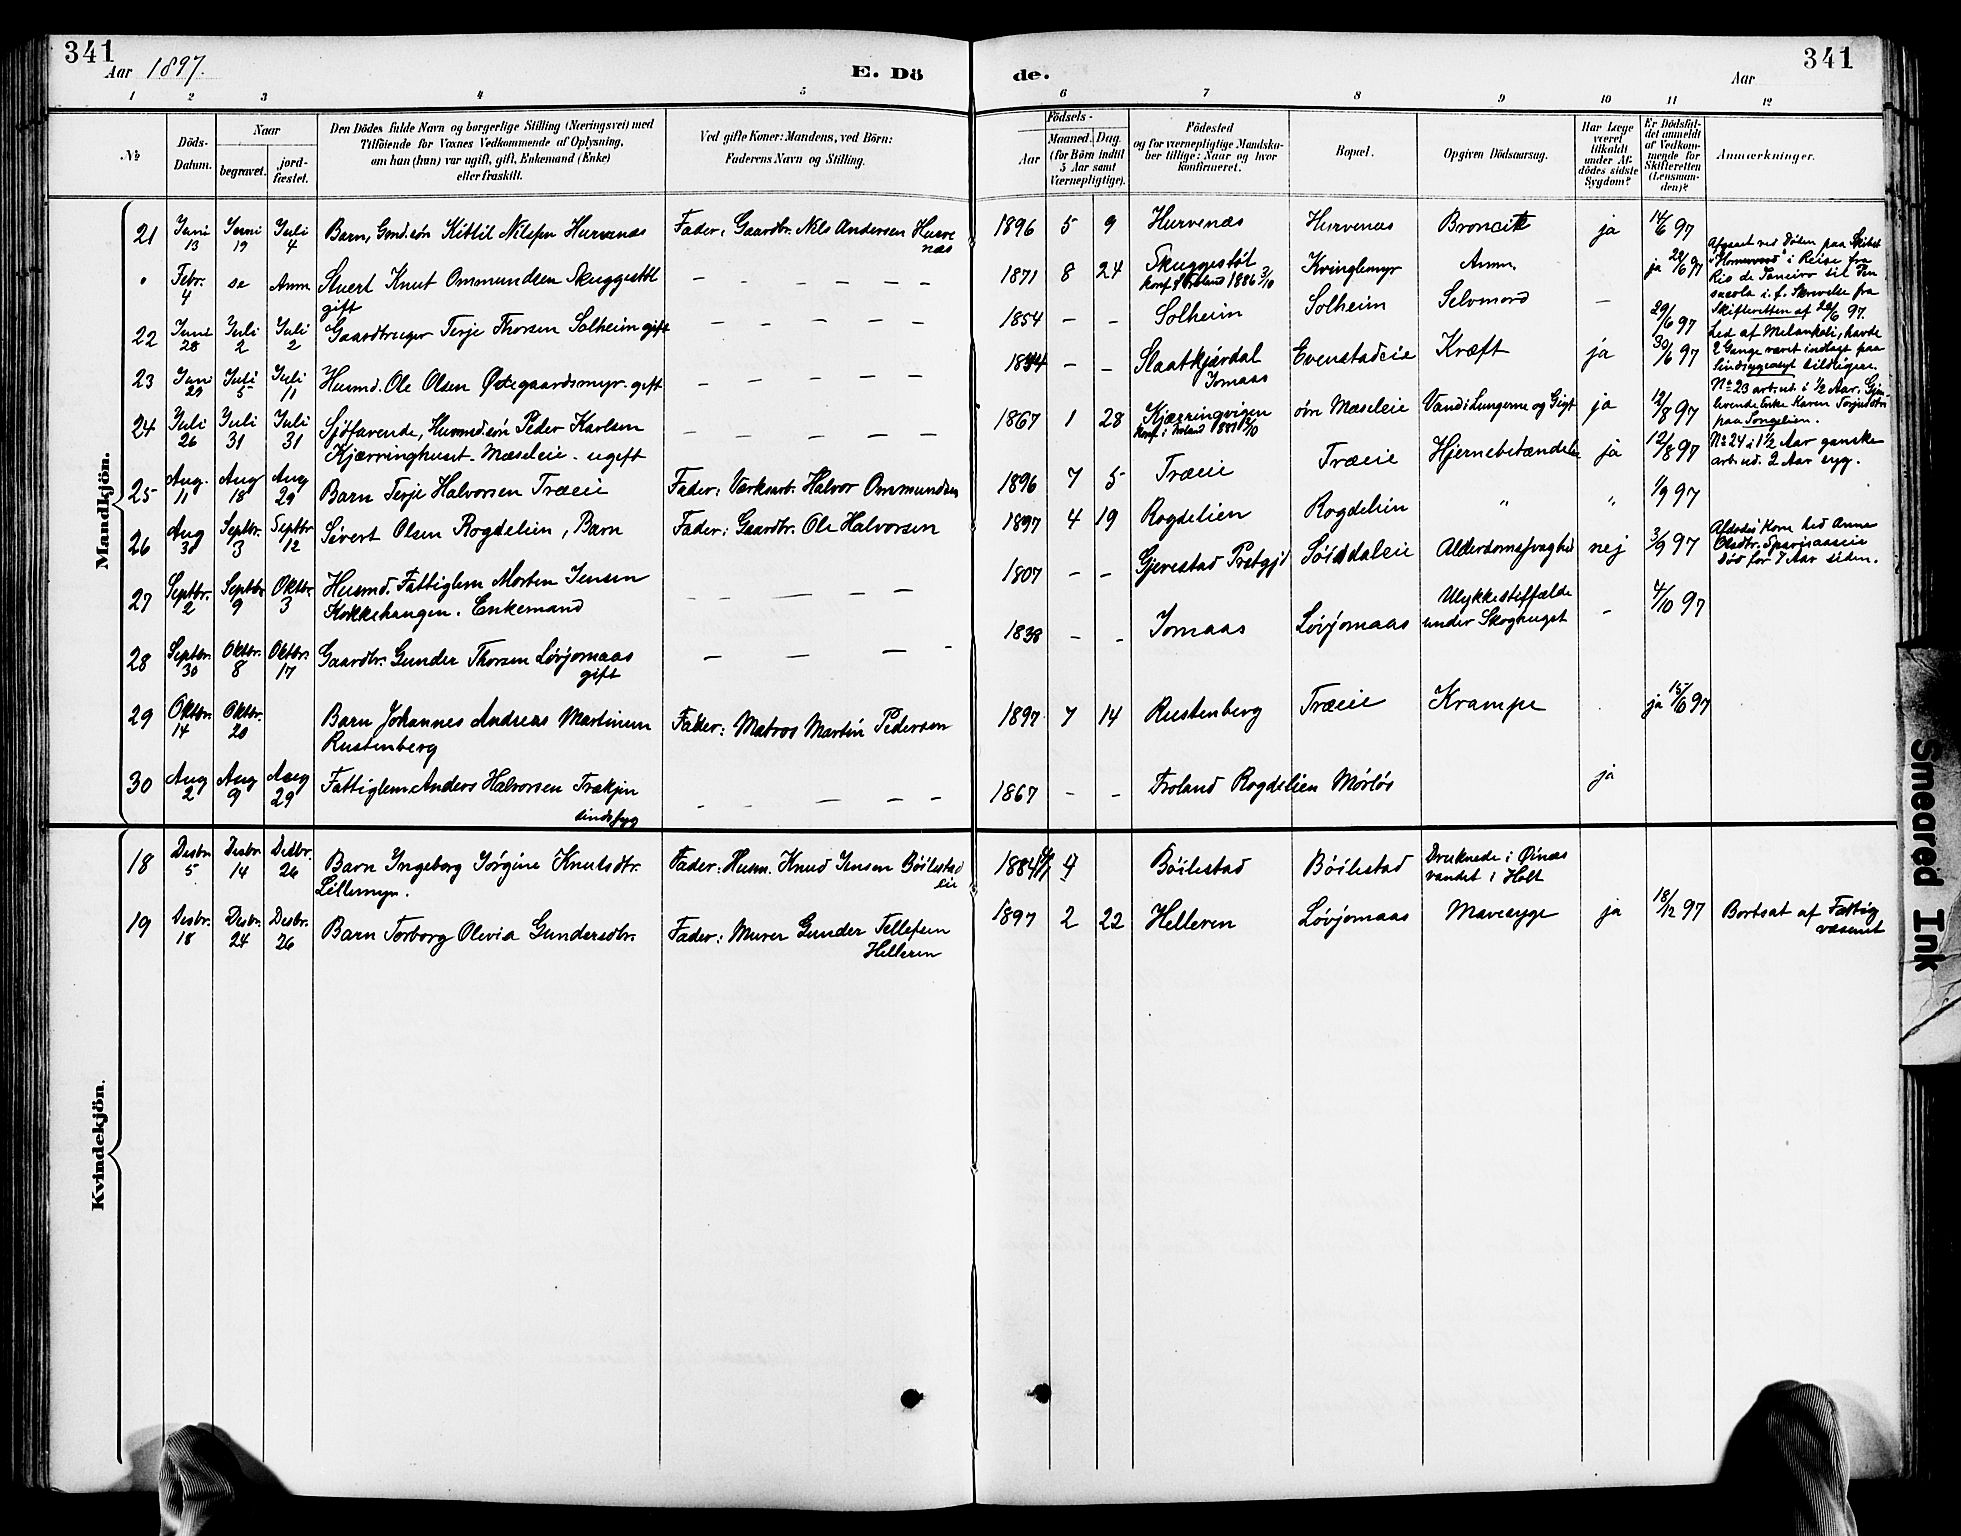 341
Aar 1897.
E. Dö
de.
Aar
341
1 2 3 4 5 6 7 8 9 10 11 12
№
Döds-Datum.
Naar
begravet.
jord-fæstet.
Den Dödes fulde Navn og borgerlige Stilling (Næringsvei) med
Tilföiende for Voxnes Vedkommende af Oplysning,
om han (hun) var ugift, gift, Enkemand (Enke)
eller fraskilt.
Ved gifte Koner: Mandens, ved Börn:
Faderens Navn og Stilling.
Födsels-
Aar
Maaned. Dag.
(for Börn indtil
5 Aar samt
Værnepligtige).
Födested
og for værnepligtige Mandska-
ber tillige: Naar og hvor
konfirmeret.
Bopæl.
Opgiven Dödsaarsag.
Har Læge
været
tilkaldt
under Af-
dödes sidste
Sygdom?
Er Dödsfal-
det anmeldt
af Vedkom-
mende for
Skifteretten
(Lensman-
den)?
Anmærkninger.
Mandkjön.
21 Juni 13 Juni 19 Juli 4 Barn, Gmd.sön Kittil Nilsen Hurvenæs Fader: Gaardbr. Nils Andersen Hurvenæs 1896 5 9 Hurvenæs Hurvenæs Broncit ja 14/6 97
" Febr. 4 se Anm Stuert Knut Ommundsen Skuggestöl
gift
– – – – – 1871 8 24 Skuggestöl
Konf. i Froland 1886 3/10
Kvinglemyr Anm. ja 28/6 97
Afgaaet ved Döden paa Skibet
i Reise fra
Rio de Janeiro til Pen
sacola i.f. Skrivelse fra
Skifteretten af 26/6 97.
22 Juni 28 Juli 2 Juli 2 Gaardbruger Terje Thorsen Solheim gift – – – – – 1854 – – Solheim Solheim Selvmord – 29/6 97
Led af Melankoli, havde
2 Gange været indlagt paa
Sindsygeasyl tidligere.
23 Juni 29 Juli 5 Juli 11 Husmd. Ole Olsen Østegaardsmyr. gift – – – – – 1834 – – Slaatkjærdal
Jomaas
Evenstadeie Kræft ja 30/6 97
No 23 arb.ud. i ½ Aar. Gjen-
levende Enke Karen Terjedatr
paa Songelien.
24 Juli 26 Juli 31 Juli 31 Sjöfarende, Husmdsön Peder Karlsen
Kjærringhuset. Mæseleie. ugift
– – – – – 1867 1 28 Kjærringvigen
Konf. i Froland
øvr Mæseleie Vand i Lungerne og Gigt ja 12/8 97
No 24 i 1½ Aar ganske
arb.ud. 2 Aar syg.
25 Aug. 11 Aug 18 Aug 29 Barn Terje Halvorsen Træeie Fader: Værksarb. Halvor Ommundsen 1896 7 5 Træeie Træeie Hjernebetændelse ja 12/8 97
26 Aug 30 Septbr. 3 Septbr 12 Sivert Olsen Rogdelien, Barn Fader: Gaardbr. Ole Halvorsen 1897 4 19 Rogdelien Rogdelien " " 1/9 97
27 Septbr. 2 Septbr 9 Oktbr. 3 Husmd. Fattiglem Morten Jensen
Kokkehaugen. Enkemand
– – – – – 1807 – – Gjerestad Prstgjd Alderdomssvaghed nej 3/9 97
Afdødes Kone hed Anne
Olsdtr.
Död for 7 Aar siden.
28 Septbr. 30 Oktbr. 8 Oktbr. 17 Gaardbr. Gunder Thorsen Lövjomaas
gift
– – – – 1838 – – Jomaas Lövjomaas Ulykkestilfælde
under Skoghugst
– 4/10 97
29 Oktbr. 14 Oktbr. 20 Barn Johannes Andreas Martinsen
Rustenberg
Fader: Matros Martin Pedersen 1897 7 14 Rustenberg Træeie Krampe . ja 15/ 97
30 Aug 2 Aug 9 Aug 29 Fattiglem Anders Halvorsen Trækjen
sindssyg
– – – – – 1867 – – Froland Rogdelien Mörlös ja
Kvindekjön.
18 Desbr. 5 Desbr 14 Desbr. 26 Barn Ingeborg Jörgine Knutsdtr.
Lillemyr.
Fader: Husm. Knud Jensen Böilestad
eie
1884 Böilestad Böilestad Druknede i Øinæs
vandet i Holt
19 Desbr. 18 Desbr. 24 Desbr. 26 Barn Torborg Olevia Gundersdtr. Fader: Murer Gunder Tellefsen
Helleren
1897 2 22 Helleren Lövjomaas Mavesyge ja 18/12 97 Bortsat af Fattig
væsenet
Smeared Ink